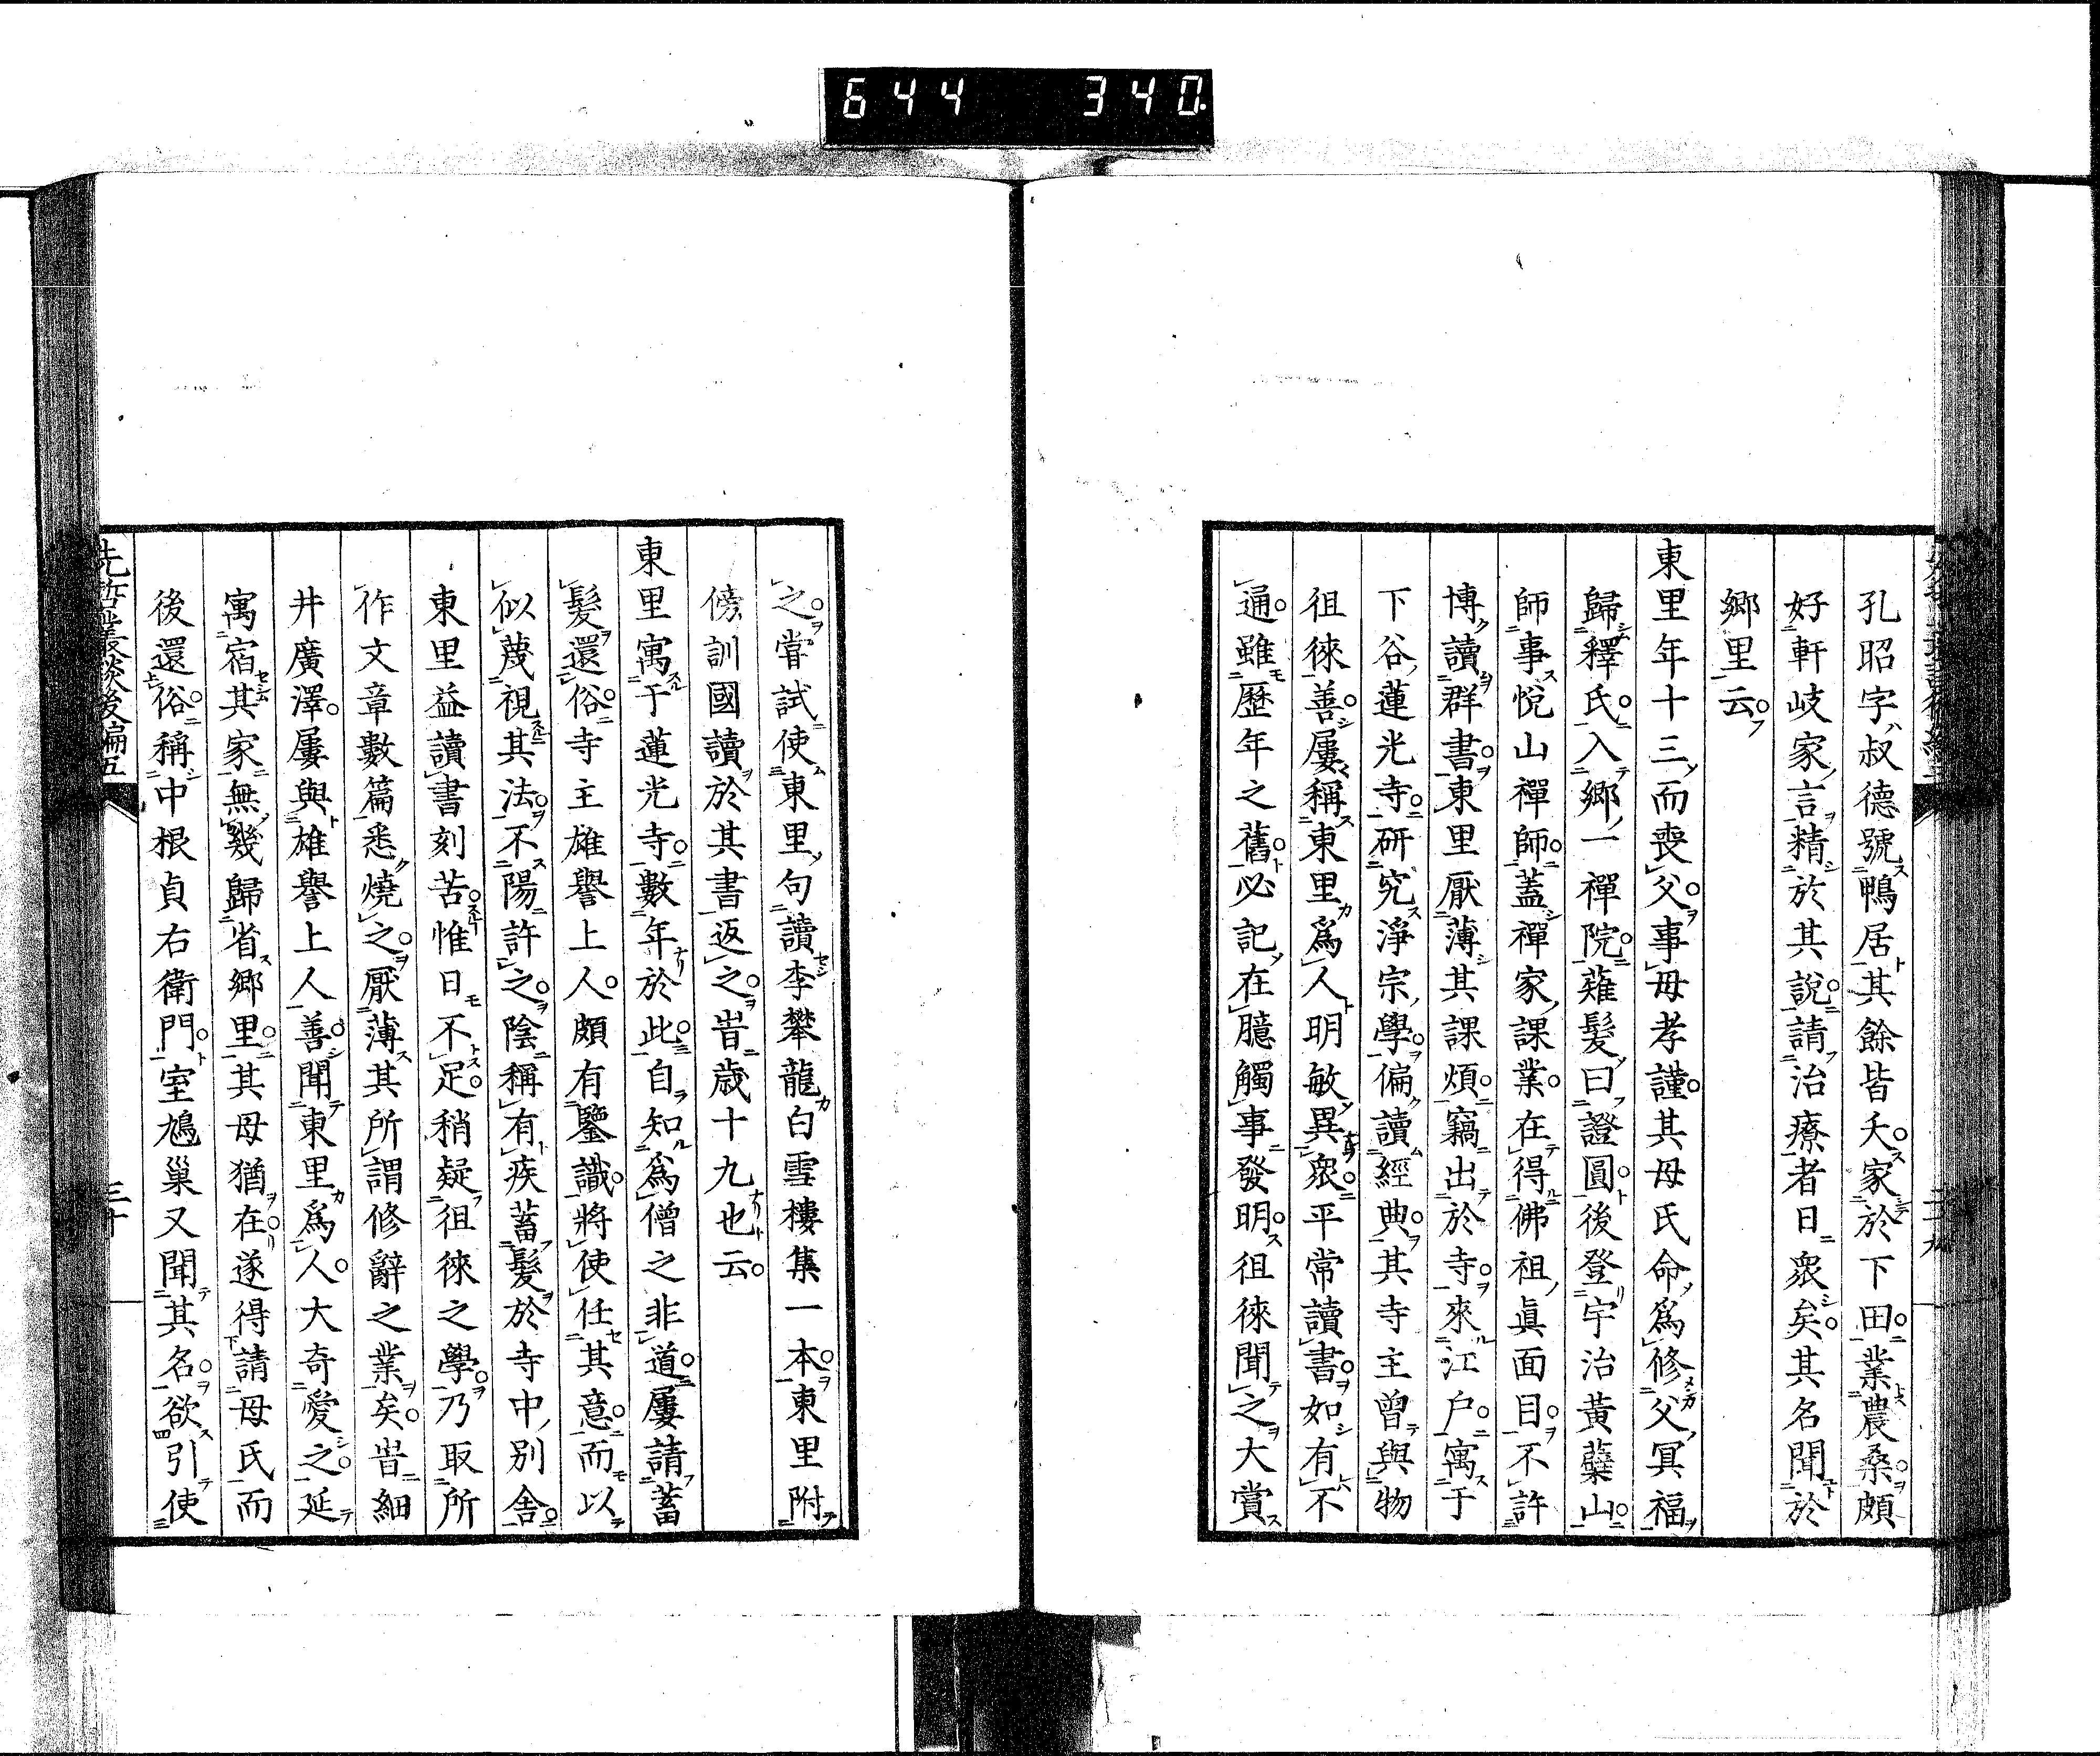 644 340
孔昭字叔德號鴨居其餘皆夭家於下田業農桑頗
好軒岐家言精於其說請治療者日衆矣其名聞於
鄉里云
東里年十三而喪父事母孝謹其母氏命爲修父冥福
歸釋氏入鄉一禪院薙髮曰證圓後登宇治黃蘗山
師事悅山禪師蓋禪家課業在得佛祖眞面目不許
博讀群書東里厭薄其課煩竊出於寺來江戶寓于
下谷蓮光寺研究淨宗學偏讀經典其寺主曾與物
徂徠善屢稱東里爲人明敏異衆平常讀書如有不
通雖歷年之舊必記在臆觸事發明徂徠聞之大賞
之嘗試使東里句讀李攀龍白雪樓集一本東里附
傍訓國讀於其書返之旹歲十九也云
東里寓于蓮光寺數年於此自知爲僧之非道屢請蓄
髮還俗寺主雄譽上人頗有鑒識將使任其意而以
似蔑視其法不陽許之陰稱有疾蓄髮於寺中別舍
東里益讀書刻苦惟日不足稍疑徂徠之學乃取所
作文章數篇悉燒之厭薄其所謂修辭之業矣旹細
井廣澤屢與雄譽上人善聞東里爲人大奇愛之延
寓宿其家無幾歸省鄉里其母猶在遂得請母氏而
後還俗稱中根貞右衛門室鳩巢又聞其名欲引使
先哲叢談後編五
三十